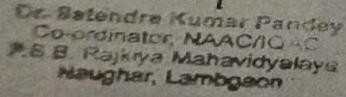 Dr. Satendra Kumar Pandey
Co-ordinator, NAAC/IQAC
P.S.B. Rajkiya Mahavidyalaya
Naughar, Lambgaon